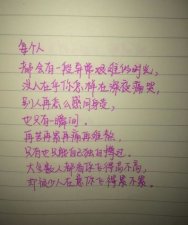 每个人
都会有一段异常艰难的时光,
没人在乎你怎样在深夜痛哭,
别人再怎么感同身受,
也只有一瞬间.
再苦再累再痛再难熬,
只有也只能自己独自撑过.
大多数人都看你飞得高不高,
却很少人在意你飞得累不累.